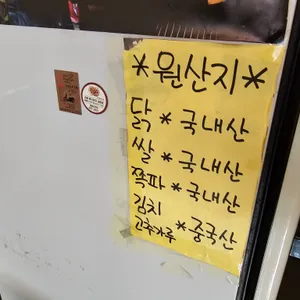 *원산지*
닭*국내산
쌀*국내산
쪽파*국내산
김치
고추가루*중국산